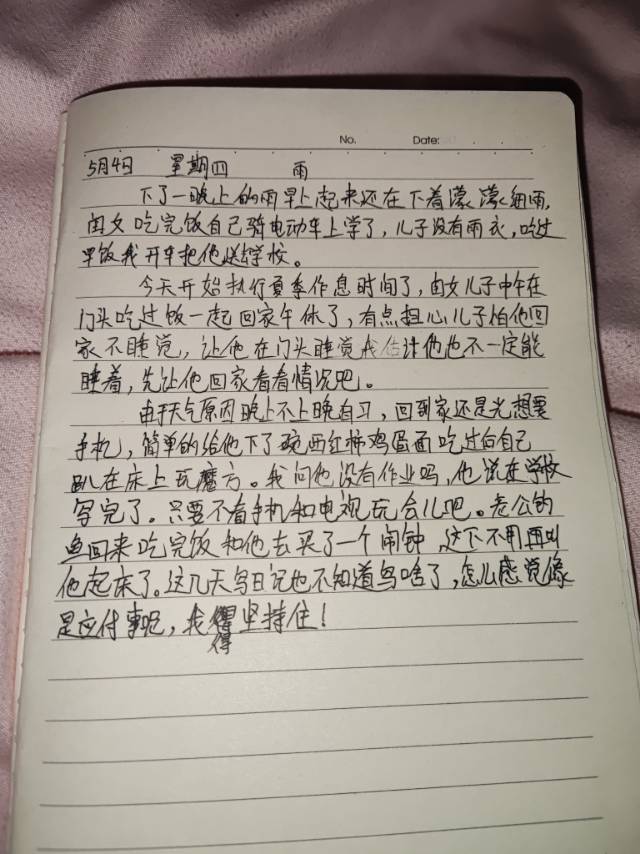 No. Date:
5月4日 星期四 雨
下了一晚上的雨早上起来还在下着濛濛细雨,
闺女吃完饭自己骑电动车上学了,儿子没有雨衣,吃过
早饭我开车把他送学校。
今天开始执行夏季作息时间了,闺女儿子中午在
门头吃过饭一起回家午休了,有点担心儿子怕他回
家不睡觉,让他在门头睡觉我估计他也不一定能
睡着,先让他回家看看情况吧。
由于天气原因晚上不上晚自习,回到家还是光想要
手机,简单的给他下了碗西红柿鸡蛋面吃过后自己
趴在床上玩魔方。我问他没有作业吗,他说在学校
写完了。只要不看手机和电视玩会儿吧。老公钓
鱼回来吃完饭和他去买了一个闹钟,这下不用再叫
他起床了。这几天写日记也不知道写啥了,怎么感觉像
是应付事呢,我得坚持住!
得